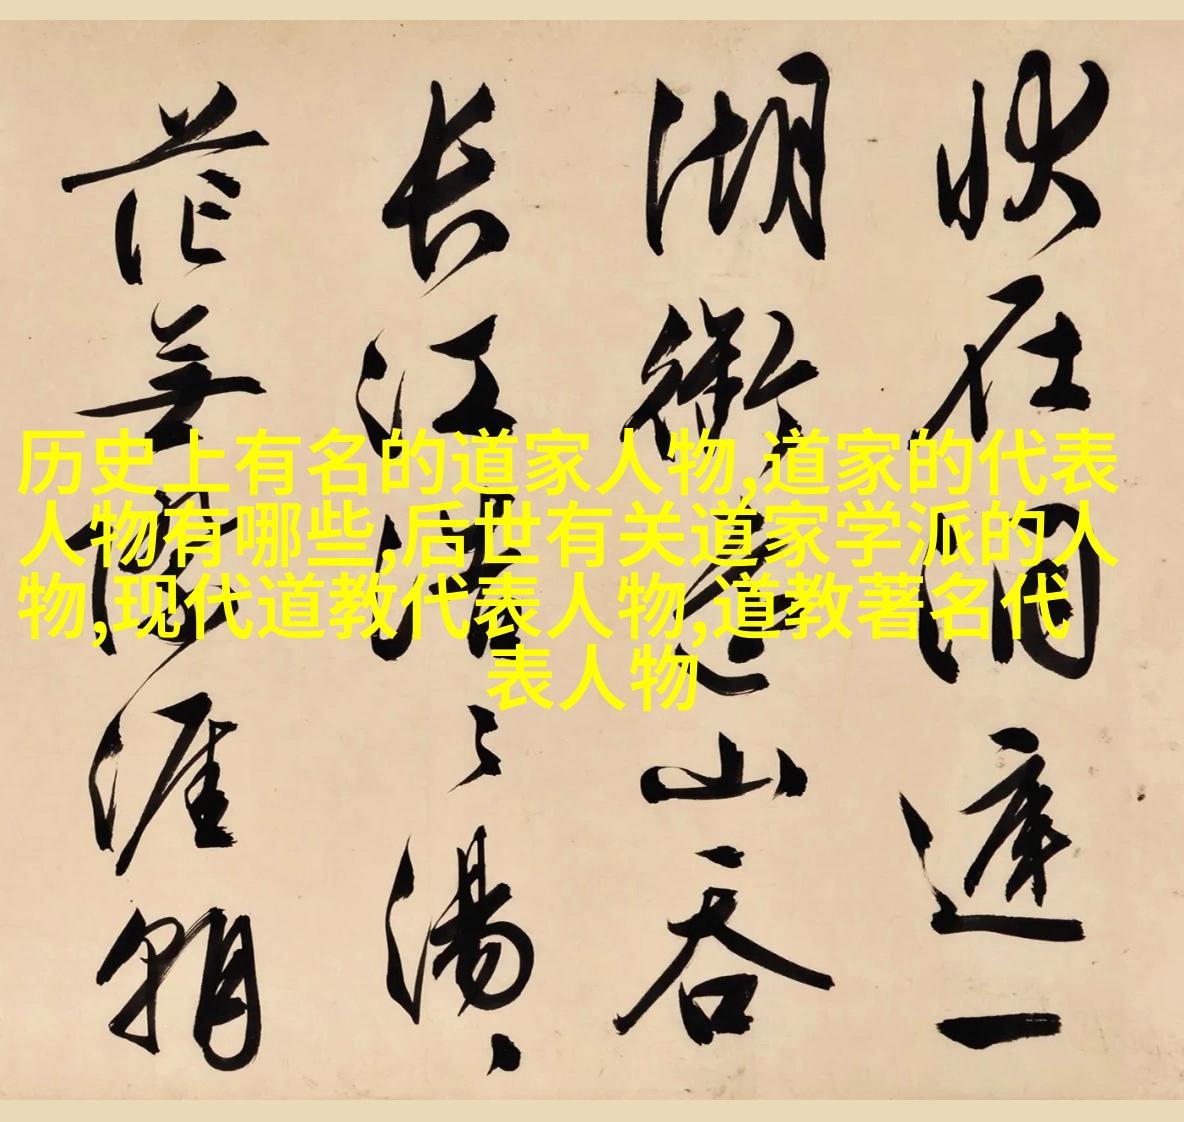 状在洞庭一
湖衔远山吞
长江浩〻湯〻
茫無際涯朝
历史上有名的道家人物,道家的代表
人物有哪些,后世有关道家学派的人
物,现代道教代表人物,道教著名代
表人物